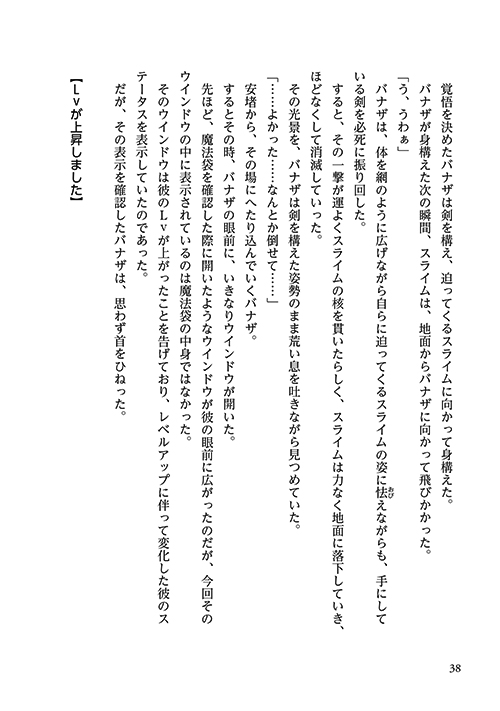 覚悟を決めたバナザは剣を構え、迫ってくるスライムに向かって身構えた。
　バナザが身構えた次の瞬間、スライムは、地面からバナザに向かって飛びかかった。
「う、うわぁ」
　バナザは、体を網のように広げながら自らに迫ってくるスライムの姿に怯えながらも、手にして
いる剣を必死に振り回した。
　すると、その一撃が運よくスライムの核を貫いたらしく、スライムは力なく地面に落下していき、
ほどなくして消滅していった。
　その光景を、バナザは剣を構えた姿勢のまま荒い息を吐きながら見つめていた。
「……よかった……なんとか倒せて……」
　安堵から、その場にへたり込んでいくバナザ。
　するとその時、バナザの眼前に、いきなりウインドウが開いた。
　先ほど、魔法袋を確認した際に開いたようなウインドウが彼の眼前に広がったのだが、今回その
ウインドウの中に表示されているのは魔法袋の中身ではなかった。
　そのウインドウは彼のＬｖが上がったことを告げており、レベルアップに伴って変化した彼のス
テータスを表示していたのであった。
　だが、その表示を確認したバナザは、思わず首をひねった。
【Ｌｖが上昇しました】
おび
38